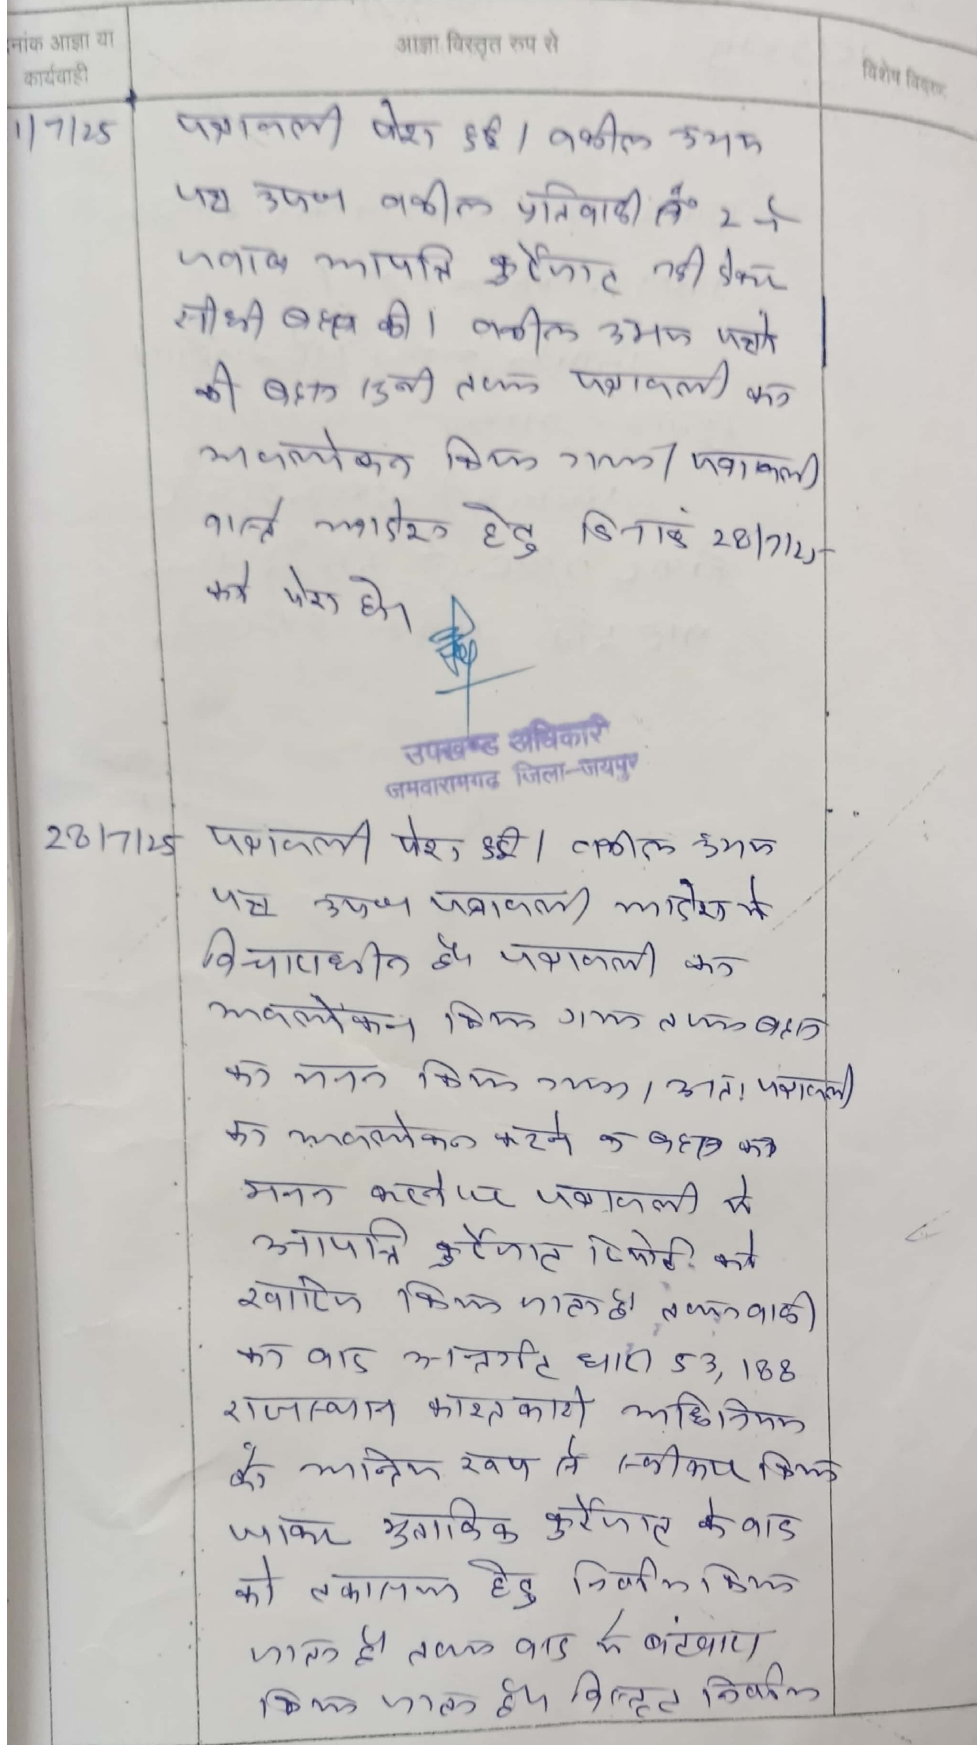 नांक आज्ञा या
कार्यवाही
आज्ञा विस्तृत रुप से
विशेष विवरण
1/7/25
पत्रावली पेश हुई। वकील उभय
पक्ष उपo वकील प्रतिवादी सं० 2 ने
जवाब आपत्ति कुर्रेजात नहीं देकर
सीधी बहस की। वकील उभय पक्षो
की बहस सुनी तथा पत्रावली का
अवलोकन किया गया। पत्रावली
वास्ते आदेश हेतु दिनांक 28/7/25
को पेश हो।
उपखण्ड अधिकारी
जमवारामगढ जिला-जयपुर
28/7/25
पत्रावली पेश हुई। वकील उभय
पक्ष उपo पत्रावली आदेश मे
विचाराधीन है। पत्रावली का
अवलोकन किया गया तथा बहस
का मनन किया गया। अतः पत्रावली
का अवलोकन करने व बहस का
मनन करने पर पत्रावली मे
आपत्ति कुर्रेजात रिपोर्ट को
खारिज किया जाता है। तथा वादी
का वाद अन्तर्गत धारा 53, 188
राजस्थान काश्तकारी अधिनियम
को अन्तिम रूप से स्वीकार किया
जाकर मुताबिक कुर्रेजात के वाद
को तकासमा हेतु निर्णीत किया
जाता है। तथा वाद मे बंटवारा
किया जाता है। विस्तृत निर्णय